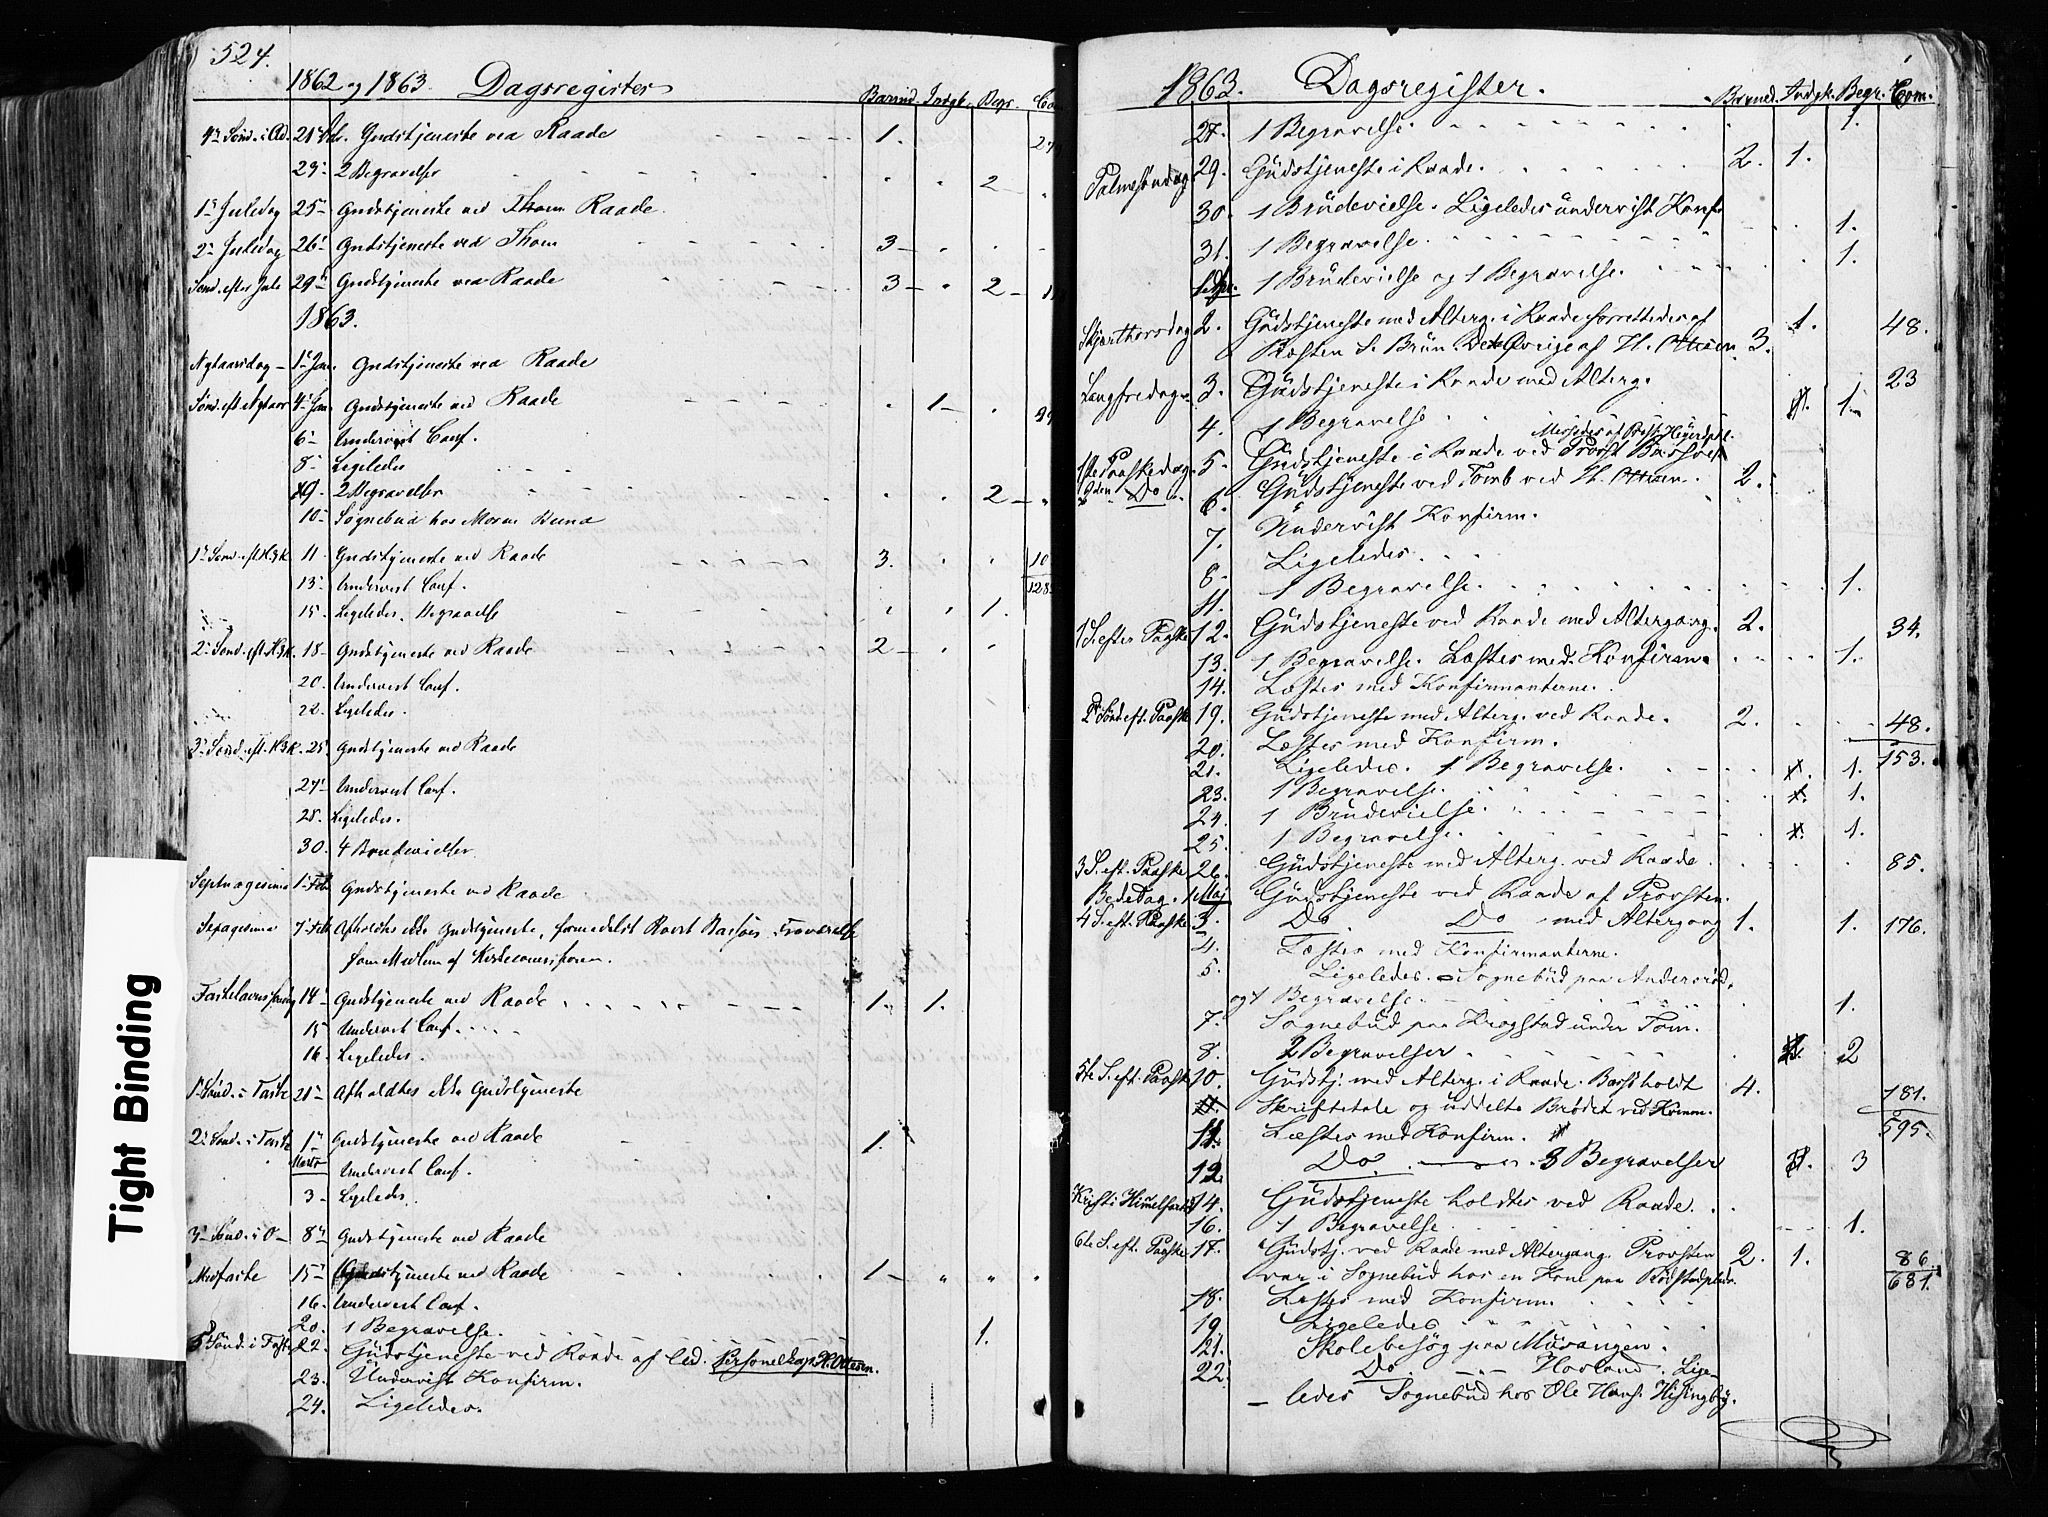 524.
1862 og 1863. Dagsregister
Barnd. Indgk. Begr. Com
4de Sönd. i Ad. 21 Gudstjeneste ved Raade 1.
23. 2 Begravelser 2
1ste Juledag 25 Gudstjeneste ved Raade.
2. Juledag 26 Gudstjeneste ved Thom 3
Sönd. efter Jule 29 Gudstjeneste ved Raade 3 2
1863.
Nytaarsdag 1. Jan. Gudstjeneste ved Raade
Sönd. eft. Nytaar 4. Jan. Gudstjeneste ved Raade 1
6 Undervist Conf.
8 Ligeledes
9. 2 Begravelser 2
10 Sognebud hos
1 Sönd. eft. H3K. 11 Gudstjeneste ved Raade 3. 10
13. Undervist Conf. 128
15. Ligeledes. Begravelse 1.
2 Sönd. eft. H3K. 18 Gudstjeneste ved Raade 2
20. Undervist Conf.
22. Ligeledes.
3 Sönd. eft. H3K. 25 Gudstjeneste ved Raade
27 Undervist Conf.
28. Ligeledes.
30. 4 Brudevielser
Septuagesima 1. Feb. Gudstjeneste ved Raade
Sexagesima 7. Feb. Afholdtes ikke Gudstjeneste, formedelst Provst Bassøes Fraværelse
som Medlem af
14 Gudstjeneste ved Raade 1. 1.
15 Undervist Conf.
16. Ligeledes.
1 Sönd. i Faste 21 Afholdtes ikke Gudstjeneste
2. Sönd. i Faste 1 Gudstjeneste ved Raade 1.
Marts Undervist Conf.
3 Ligeledes.
3 Sönd. i 8 Gudstjeneste ved Raade
Midfaste 15 Gudstjeneste ved Raade 1
16. Undervist Conf.
20. 1 Begravelse. 1.
5 Sönd. i Faste 22. Gudstjeneste ved Raade af Personelkap. H. Ottesen.
23. Undervist Konfirm.
24. Ligeledes.
1863. Dagsregister.
Barned. Indgk. Begr. Com.
27. 1 Begravelse. 1.
Palmesöndag 29. Gudstjeneste i Raade. 2. 1.
30. 1 Brudevielse. Ligeledes undervist Konf.
31. 1 Begravelse. 1.
1 Brudevielse og 1 Begravelse. 1.
Skjærthorsdag 2. Gudstjeneste med Alterg. i Raade forrettedes af 1. 48.
Præsten S. Brun. Det Øvrige af H. Ottesen 3.
Langfredag 3. Gudstjeneste i Raade med Alterg. 23
4. 1 Begravelse 1
Messedes af
1ste Paaskedag 5. Gudstjeneste i Raade ved Provst Bassøe
2den Do 6. Gudstjeneste ved Tomb ved H. Ottesen. 2.
7. Undervist Konfirm.
8. Ligeledes.
11. 1 Begravelse. 1.
1 S. efter Paaske 12. Gudstjeneste ved Raade med Altergang. 2. 34.
13. 1 Begravelse. Læstes med Konfirm. 1.
14. Læstes med Konfirmanterne.
2 Sönd eft. Paaske 19. Gudstjeneste med Alterg. ved Raade. 2. 48.
20. Læstes med Konfirm.
21. Ligeledes. 1 Begravelse. 1. 153.
23. 1 Begravelse. 1.
24. 1 Brudevielse.
25. 1 Begravelse. 1.
3 S. eft. Paaske 26. Gudstjeneste med Alterg. ved Raade. 85.
BedeDag. 1 Maj Gudstjeneste ved Raade af Provsten.
4 S. eft. Paaske 3. Do. Do med Altergang 1. 1. 176.
4. Læstes med Konfirmanterne.
5. Ligeledes. Sognebud paa Andersrød.
og 1 Begravelse. 1.
7. Sognebud paa Krogstad under Tom.
8. 2 Begravelser 2
5te S. eft. Paaske 10. Gudstj. med Alterg. i Raade. Bassö holdt 4. 181.
Skriftetale og uddelte Brødet ved Komm.
11. Læstes med Konfirm. 595.
12 Do. 3 Begravelser 3
Kristi Himelfart 14. Gudstjeneste holdtes ved Raade.
16. 1 Begravelse 1.
6te S. eft. Paaske 17. Gudstj. ved Raade med Altergang. Provsten 2. 1. 86.
var i Sognebud hos en Kone paa 681.
18. Læstes med Konfirm.
19. Ligeledes
21. Skolebesög paa
22. Do. Lige-
ledes Sognebud hos Ole Hans.
Tight Binding